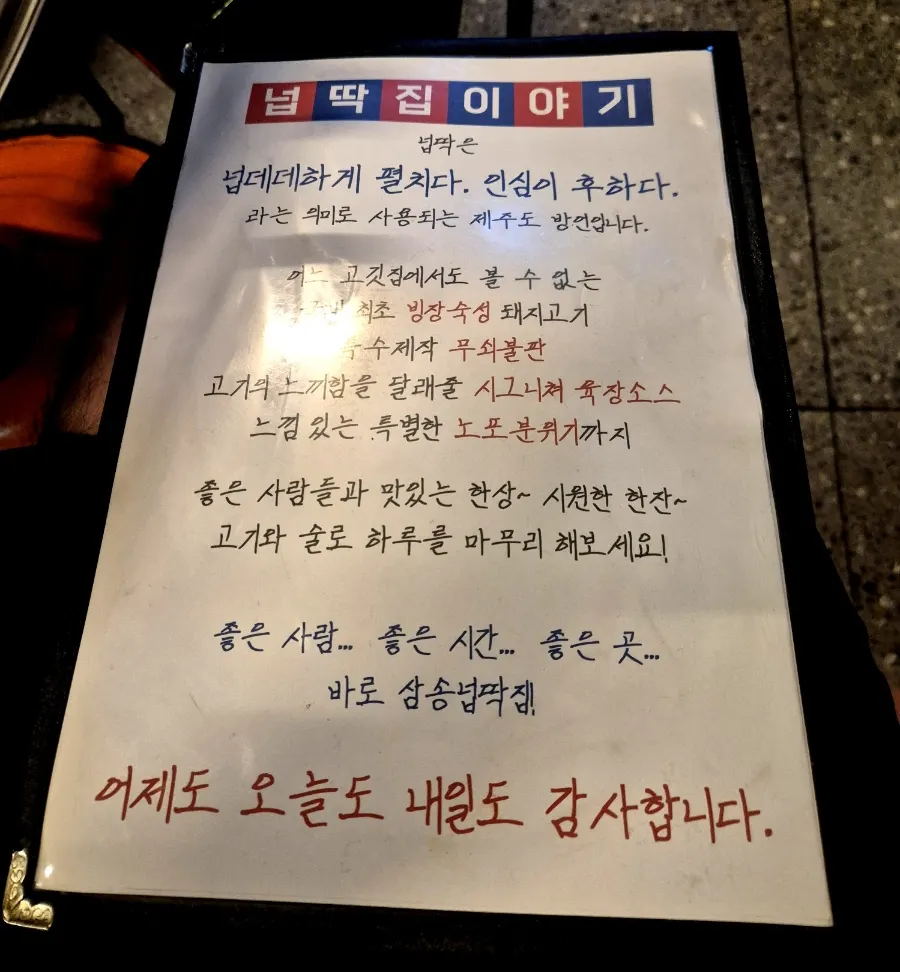 넙딱집이야기
넙딱은
넙데데하게 펼치다. 인심이 후하다.
라는 의미로 사용되는 제주도 방언입니다.
어느 고깃집에서도 볼 수 없는
최초 빙장숙성 돼지고기
특수제작 무쇠불판
고기의 느끼함을 달래줄 시그니쳐 육장소스
느낌있는 특별한 노포분위기까지
좋은 사람들과 맛있는 한상~ 시원한 한잔~
고기와 술로 하루를 마무리 해보세요!
좋은 사람... 좋은 시간... 좋은 곳...
바로 삼송넙딱집!
어제도 오늘도 내일도 감사합니다.